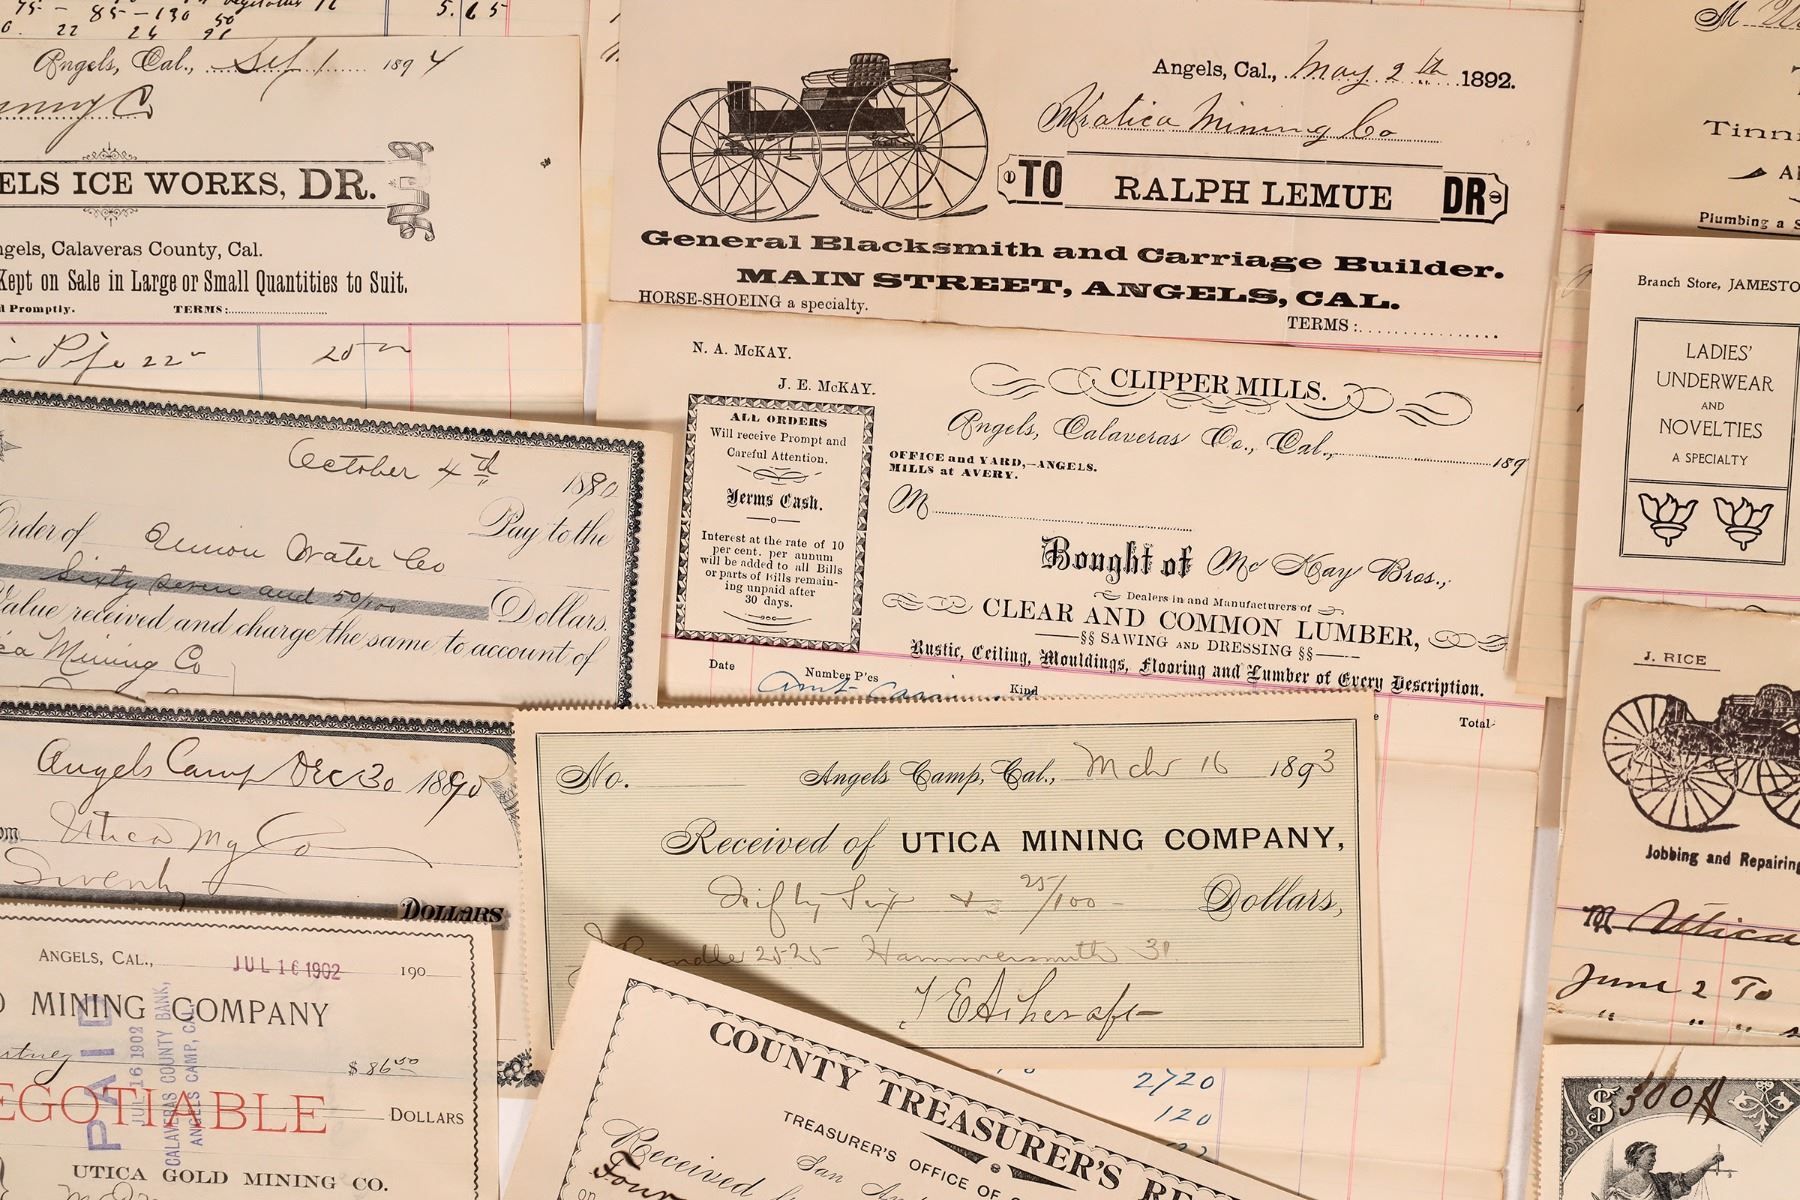 5.65
75 - 85 - 130 50
22 26 91
Angels, Cal., Sep 1 1894
ELS ICE WORKS, DR.
ngels, Calaveras County, Cal.
Kept on Sale in Large or Small Quantities to Suit.
d Promptly. TERMS:
Pipe 22
Angels, Cal., May 2th 1892.
Mining Co
TO RALPH LEMUE DR
General Blacksmith and Carriage Builder.
MAIN STREET, ANGELS, CAL.
HORSE-SHOEING a specialty.
TERMS:
M
Tinni
Plumbing a S
Branch Store, JAMESTO
LADIES'
UNDERWEAR
AND
NOVELTIES
A SPECIALTY
N. A. McKAY.
J. E. McKAY.
ALL ORDERS
Will receive Prompt and
Careful Attention.
Terms Cash.
Interest at the rate of 10
per cent. per annum
will be added to all Bills
or parts of Bills remain-
ing unpaid after
30 days.
CLIPPER MILLS.
Angels, Calaveras Co., Cal., 189
OFFICE and YARD,—ANGELS.
MILLS at AVERY.
M
Bought of McKay Bros.,
Dealers in and Manufacturers of
CLEAR AND COMMON LUMBER,
§§ SAWING AND DRESSING §§
Rustic, Ceiling, Mouldings, Flooring and Lumber of Every Description.
Date Number P'ces Kind Total
October 4th 1890
Pay to the
Order of Union Water Co
Sixty seven and 50/100 Dollars
Value received and charge the same to account of
Mining Co
Angels Camp Dec 30 1890
om Utica Mg Co
DOLLARS
No. Angels Camp, Cal., Mch 16 1893
Received of UTICA MINING COMPANY,
Fifty Six & 25/100 Dollars,
2525 Hammersmith 31
J E Ashcraft
J. RICE
Jobbing and Repairing
M Utica
June 2 To
" " "
ANGELS, CAL., JUL 16 1902 190
MINING COMPANY
$ 86 50
EGOTIABLE
DOLLARS
PAID
JUL 16 1902
CALAVERAS COUNTY BANK,
ANGELS CAMP, CAL.
UTICA GOLD MINING CO.
2720
120
COUNTY TREASURER'S RE
TREASURER'S OFFICE OF
San An
Received
Four
$ 300